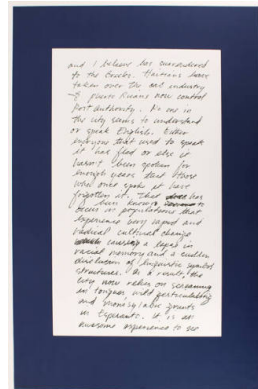 and I believe has surrendered
to the Greeks. Haitians have
taken over the art industry
& Puerto Ricans now control
Port Authority. No one in
the city seems to understand
or speak English. Either
everyone that used to speak
it has fled or else it
hasn't been spoken for
enough years that those
who once spoke it have
forgotten it. This does has
been known to
occur in populations that
experience very rapid and
radical cultural change
causing a lapse in
racial memory and a sudden
dissolution of linguistic symbol
structures. As a result, the
city now takes on screaming
in tongues, wild gesticulating
and monosyllabic grunts
in Esperanto. It is an
awesome experience to see